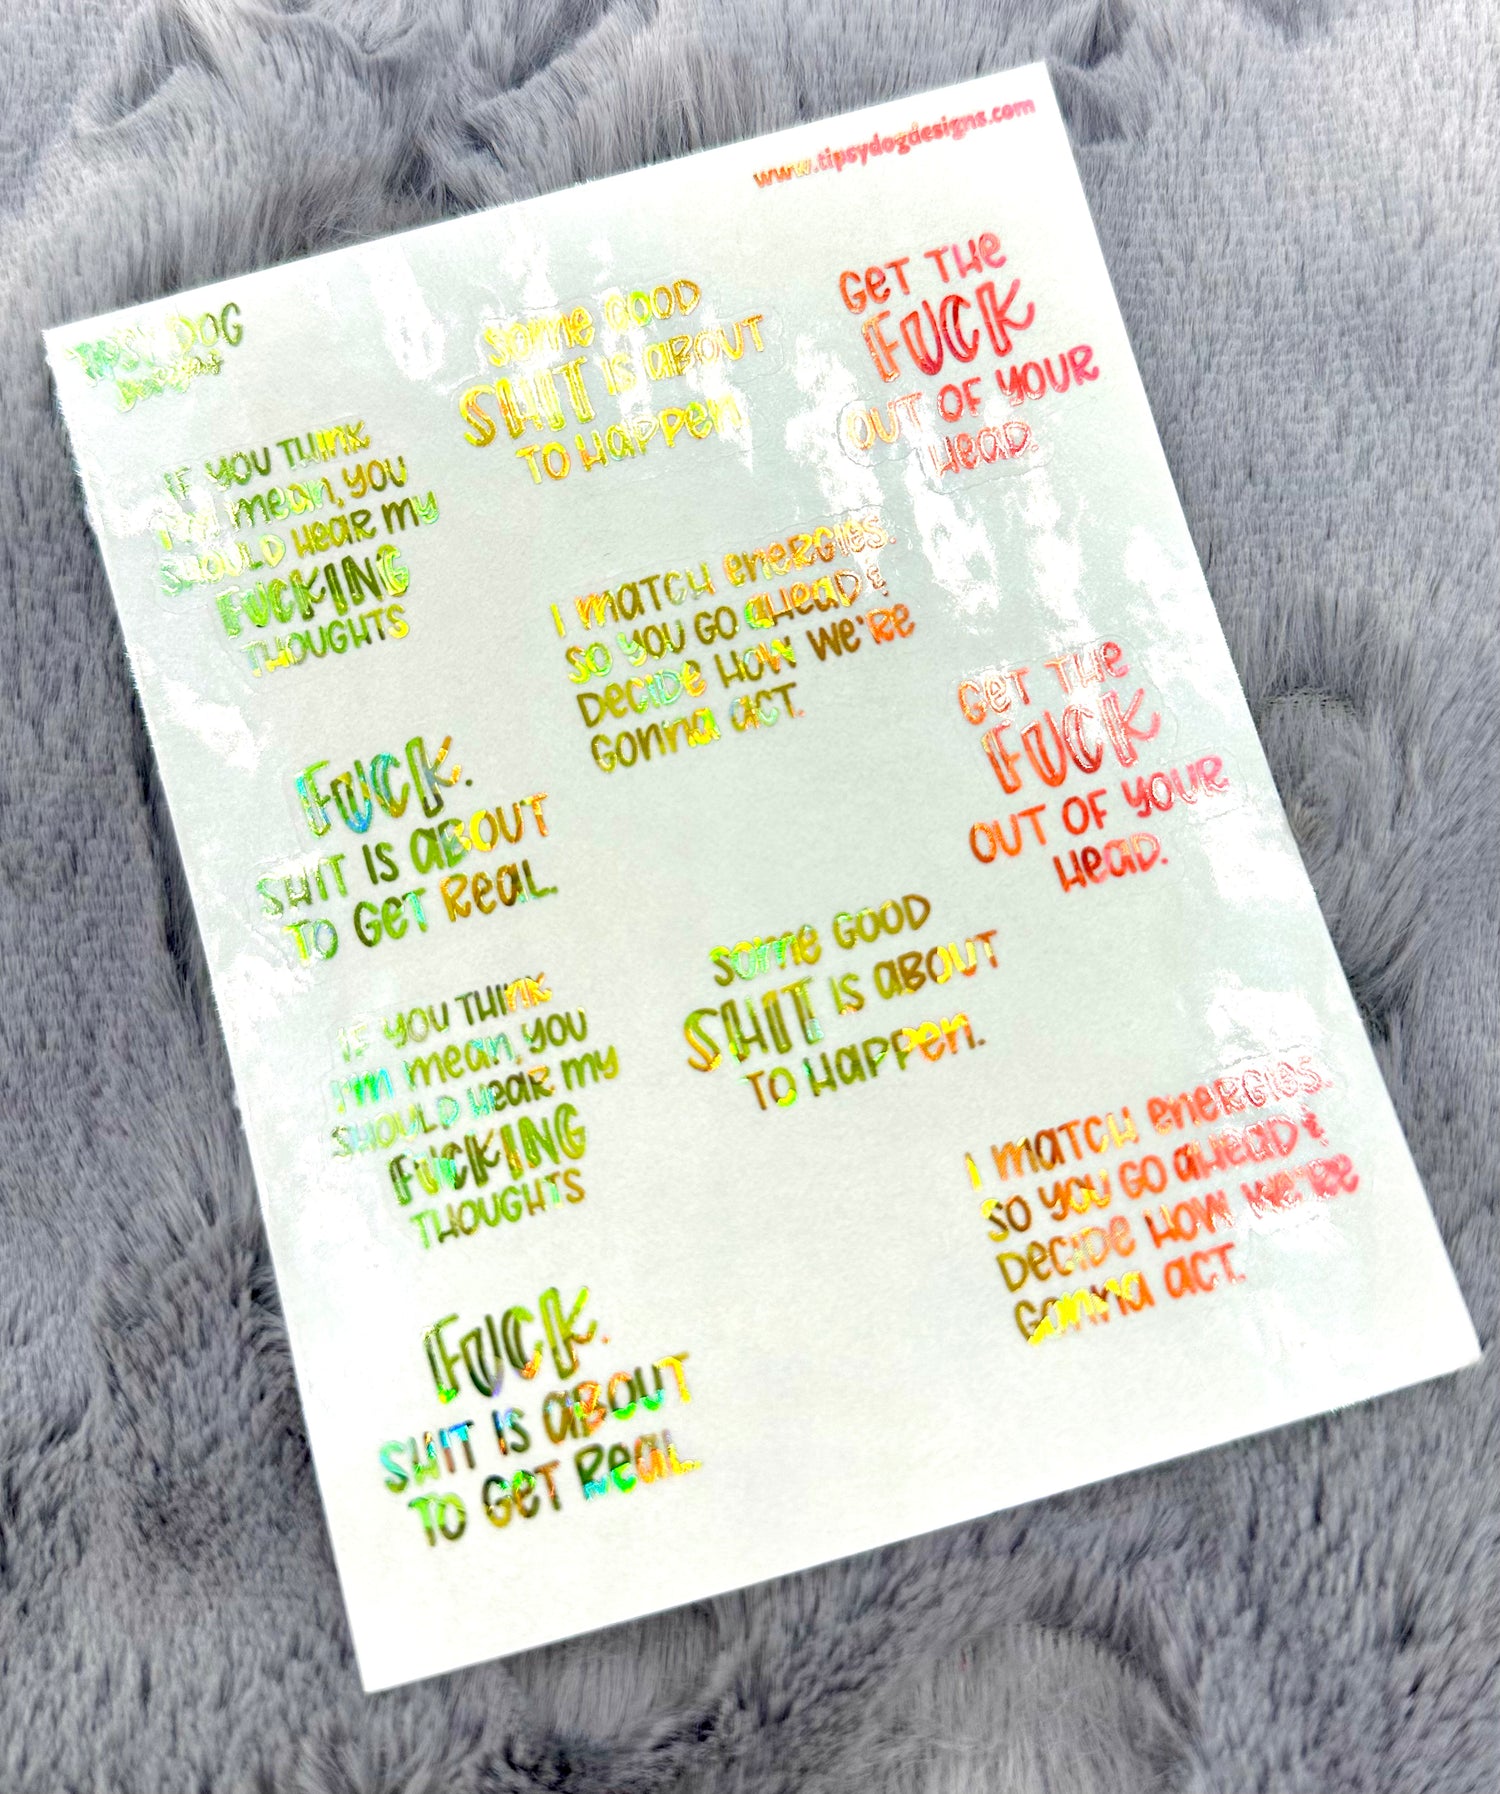 www.tipsydogdesigns.com
TIPSY DOG
Designs
IF YOU THINK
I'm mean, YOU
SHOULD Hear my
FUCKING
THOUGHTS
some GOOD
SHIT IS aBOUT
TO Happen.
GeT THe
FUCK
OUT OF YOUR
Head.
I maTCH enerGies.
SO YOU GO aHeaD &
DeCIDe HOW we're
GOnna aCT.
FUCK.
SHIT IS aBOUT
TO GeT Real.
GeT THe
FUCK
OUT OF YOUR
Head.
IF YOU THINK
I'm mean, YOU
SHOULD Hear my
FUCKING
THOUGHTS
some GOOD
SHIT IS aBOUT
TO Happen.
I maTCH enerGies.
SO YOU GO aHeaD &
DeCIDe HOW we're
GOnna aCT.
FUCK.
SHIT IS aBOUT
TO GeT Real.